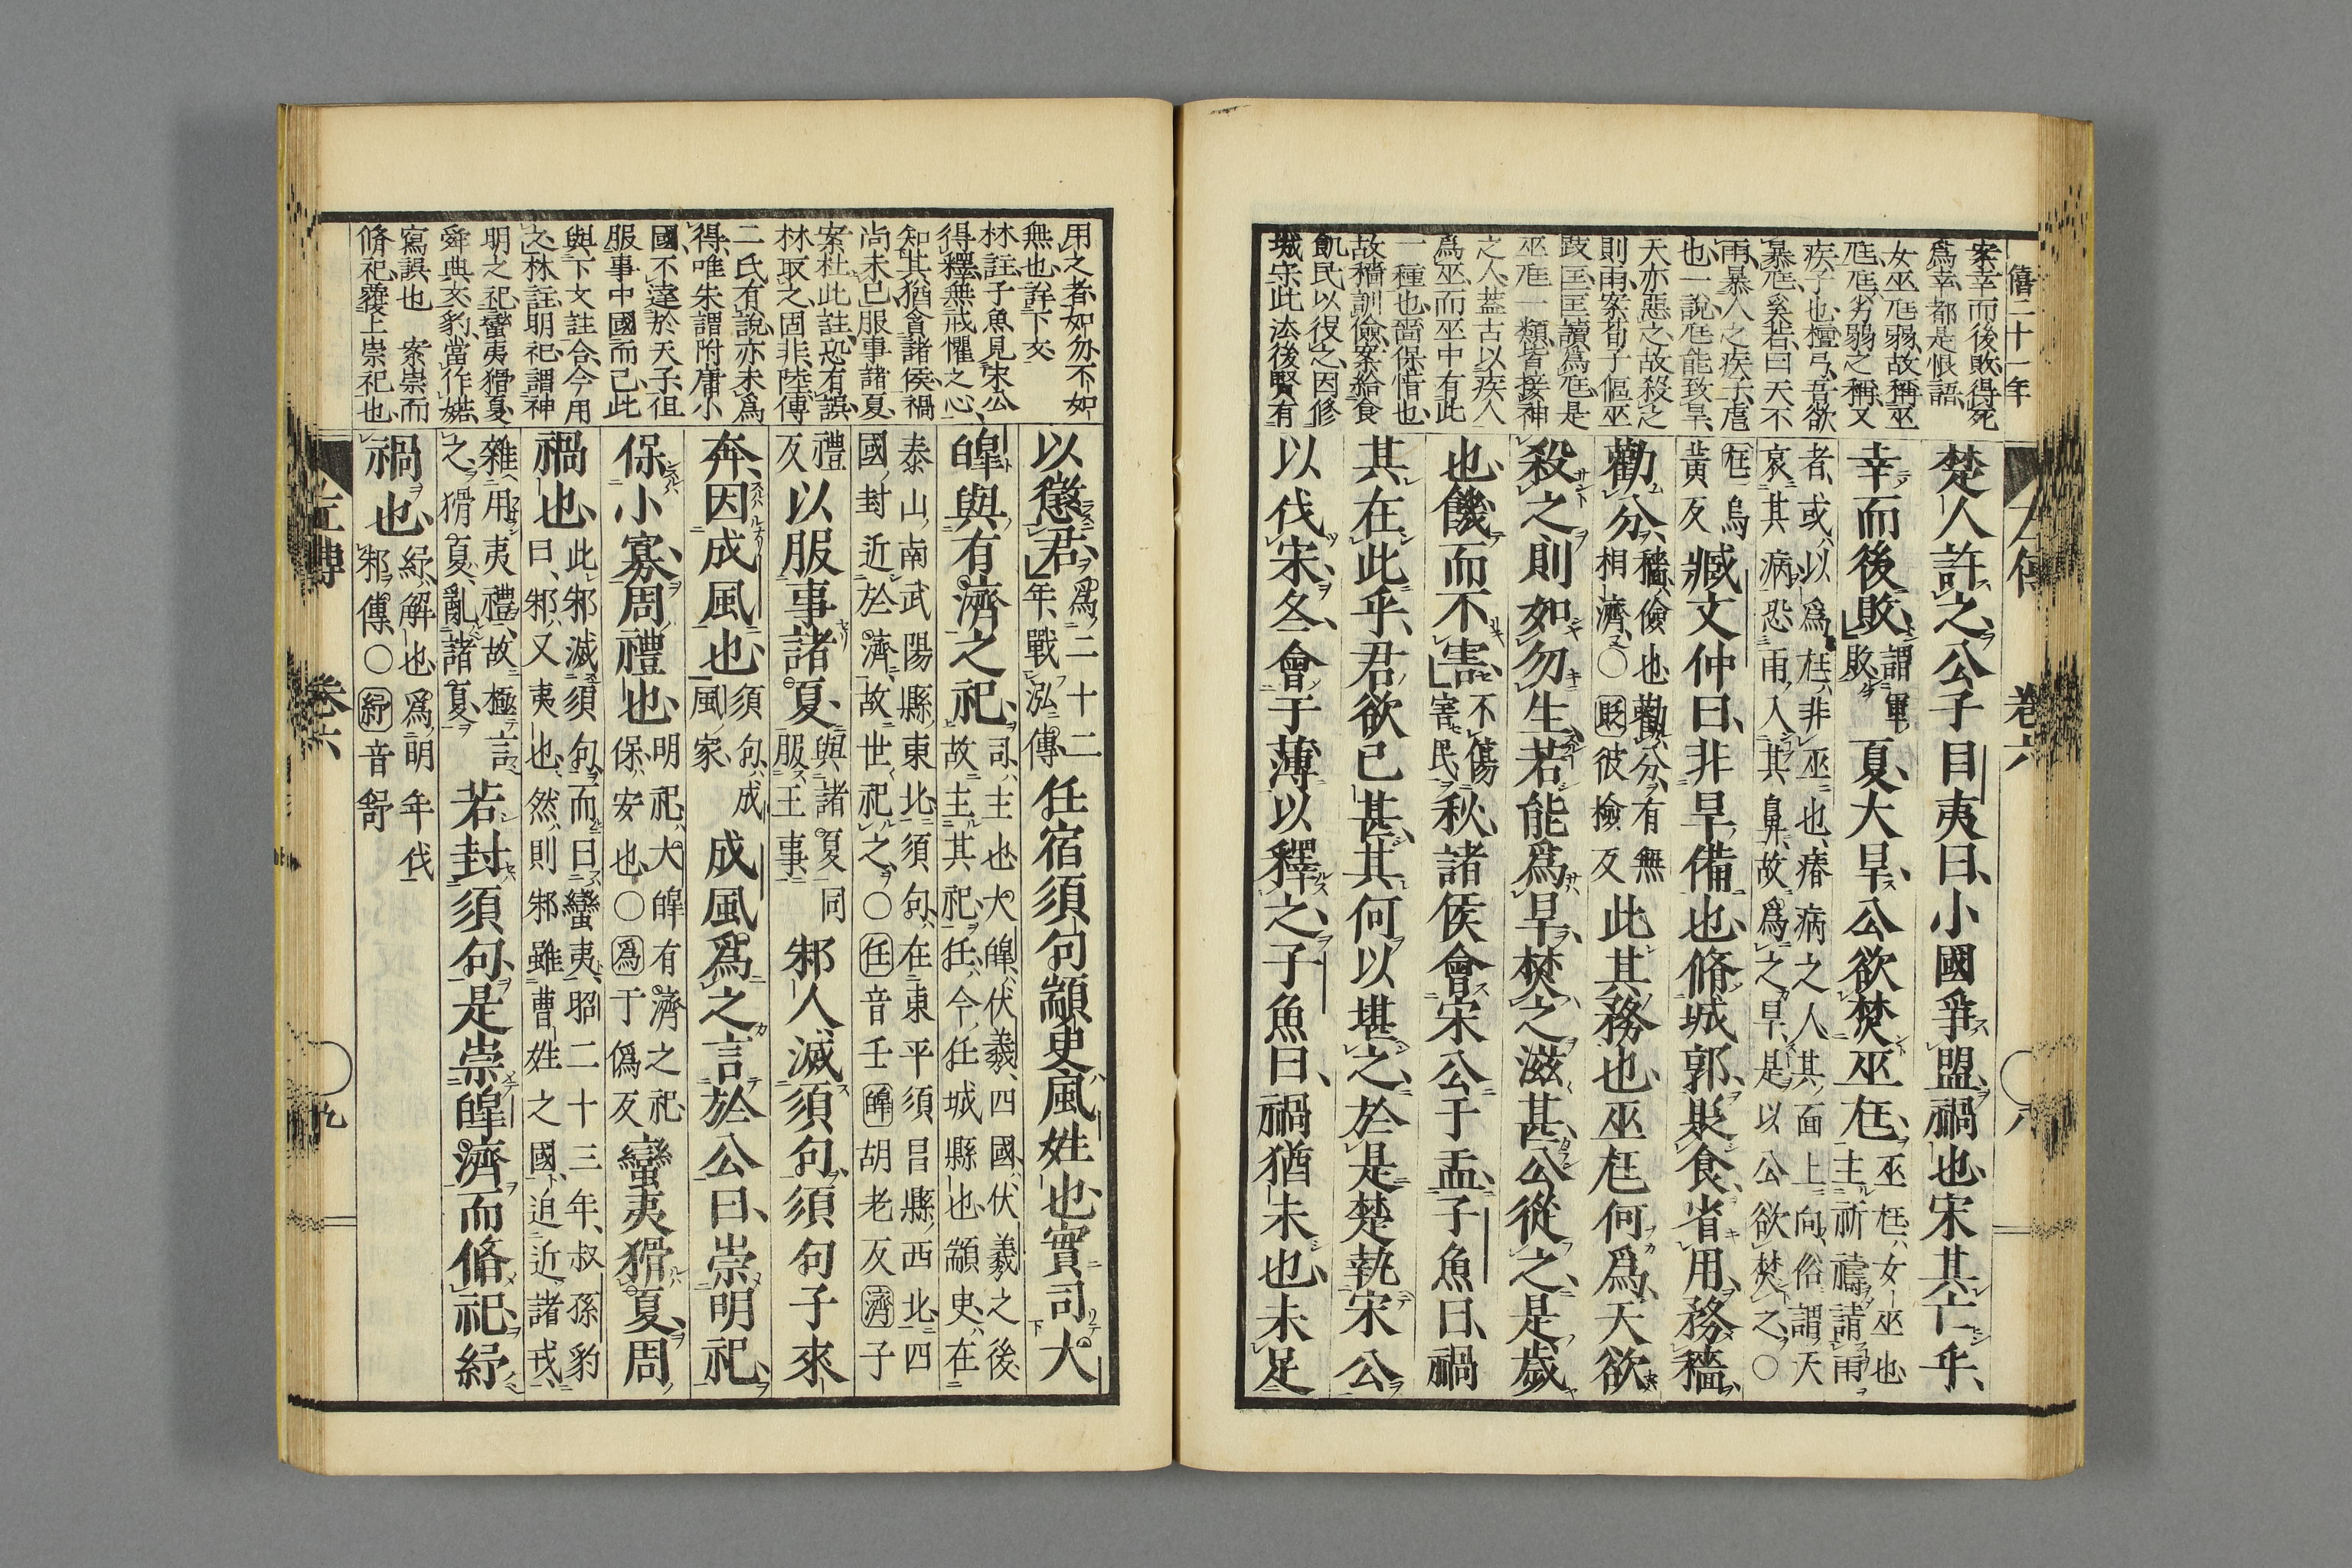 僖二十一年
案幸而後敗、得死
爲幸、都是恨語、
女巫尫弱、故稱巫
尫尫、劣弱之稱、又
疾子也、檀弓、吾欲
暴尫奚若曰天不
雨、暴人之疾子、虐
也、一說、尫能致旱、
天亦惡之、故殺之
則雨、案荀子傴巫
跂匡、匡讀爲尫、是
巫尫一類、皆接神
之人、蓋古以疾人
爲巫、而巫中有此
一種也、嗇保惜也、
故穡訓儉、案給食
飢民以役之、因修
城守、此法後賢有
楚人許之公子目夷曰、小國爭盟、禍也、宋其亡乎、
幸而後敗、謂軍敗、夏、大旱、公欲焚巫尫、巫尫、女巫也主祈禱請雨
者、或以爲尫、非巫也、瘠病之人、其面上向、俗謂天
哀其病、恐雨入其鼻、故爲之旱、是以公欲焚之、〇
尫烏黃反臧文仲曰、非旱備也、脩城郭、貶食省用、務穡
勸分、穡、儉也、勸分、有無相濟、〇貶、彼檢反此其務也、巫尫何爲、天欲
殺之、則如勿生、若能爲旱、焚之滋甚、公從之、是歲
也、饑而不害、不傷害民秋、諸侯會宋公于盂、子魚曰、禍
其在此乎、君欲已甚、其何以堪之、於是楚執宋公
以伐宋、冬、會于薄以釋之、子魚曰、禍猶未也、未足
左傳 卷六 八
用之者、如勿不如
無也、詳下文、
林註、子魚見宋公
得釋、無戒懼之心、
知其猶貪諸侯、禍
尚未已服事諸夏、
案杜此註、恐有誤、
林取之、固非、陸傳
二氏有說、亦未爲
得、唯朱謂附庸小
國、不達於天子、徂
服事中國而已、此
與下文註合、今用
之、林註、明祀、謂神
明之祀、蠻夷猾夏、
舜典文、豹當作婼、
寫誤也 案崇而
脩祀、覆上崇祀也、
以懲君、爲二十二年、戰泓傳任宿須句顓臾、風姓也、實司大
皥與有濟之祀、司、主也、大皥、伏羲、四國、伏羲之後、故主其祀、任、今任城縣也、顓臾、在
泰山南武陽縣東北、須句、在東平須昌縣西北、四
國、封近於濟、故世祀之、〇任音壬皥胡老反濟子
禮反以服事諸夏、與諸夏同服王事邾人滅須句、須句子來
奔、因成風也、須句、成風家、成風爲之言於公曰、崇明祀、
保小寡、周禮也、明祀、大皥有濟之祀、保、安也、〇爲于僞反蠻夷猾夏、周
禍也、此邾滅須句而曰蠻夷、昭二十三年、叔孫豹曰、邾又夷也、然則邾雖曹姓之國、迫近諸戎、
雜用夷禮、故極言之、猾夏、亂諸夏若封須句、是崇皥濟而脩祀、紓
禍也、紓、解也、爲明年伐邾傳、〇紓音舒
左傳 卷六 九